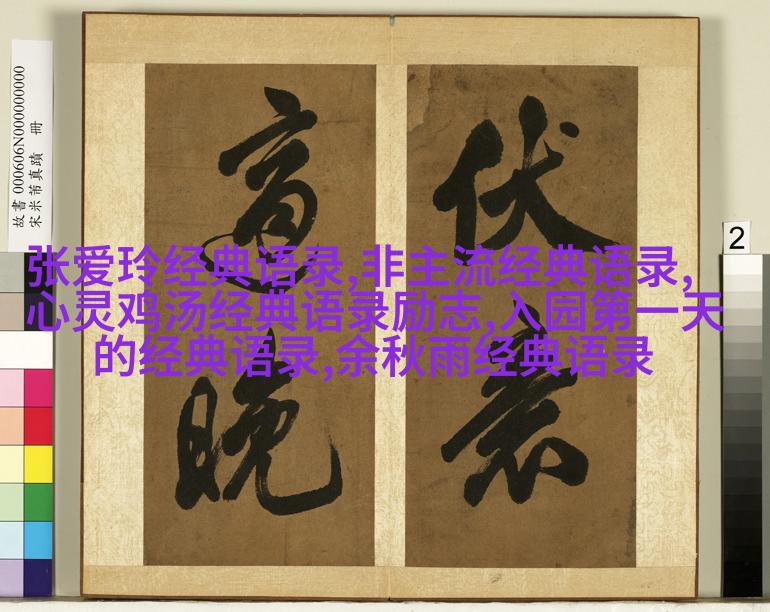 故書 000606N000000000
宋米芾真蹟 冊
伏
晚
张爱玲经典语录,非主流经典语录,
心灵鸡汤经典语录励志,入园第一天
的经典语录,余秋雨经典语录
2